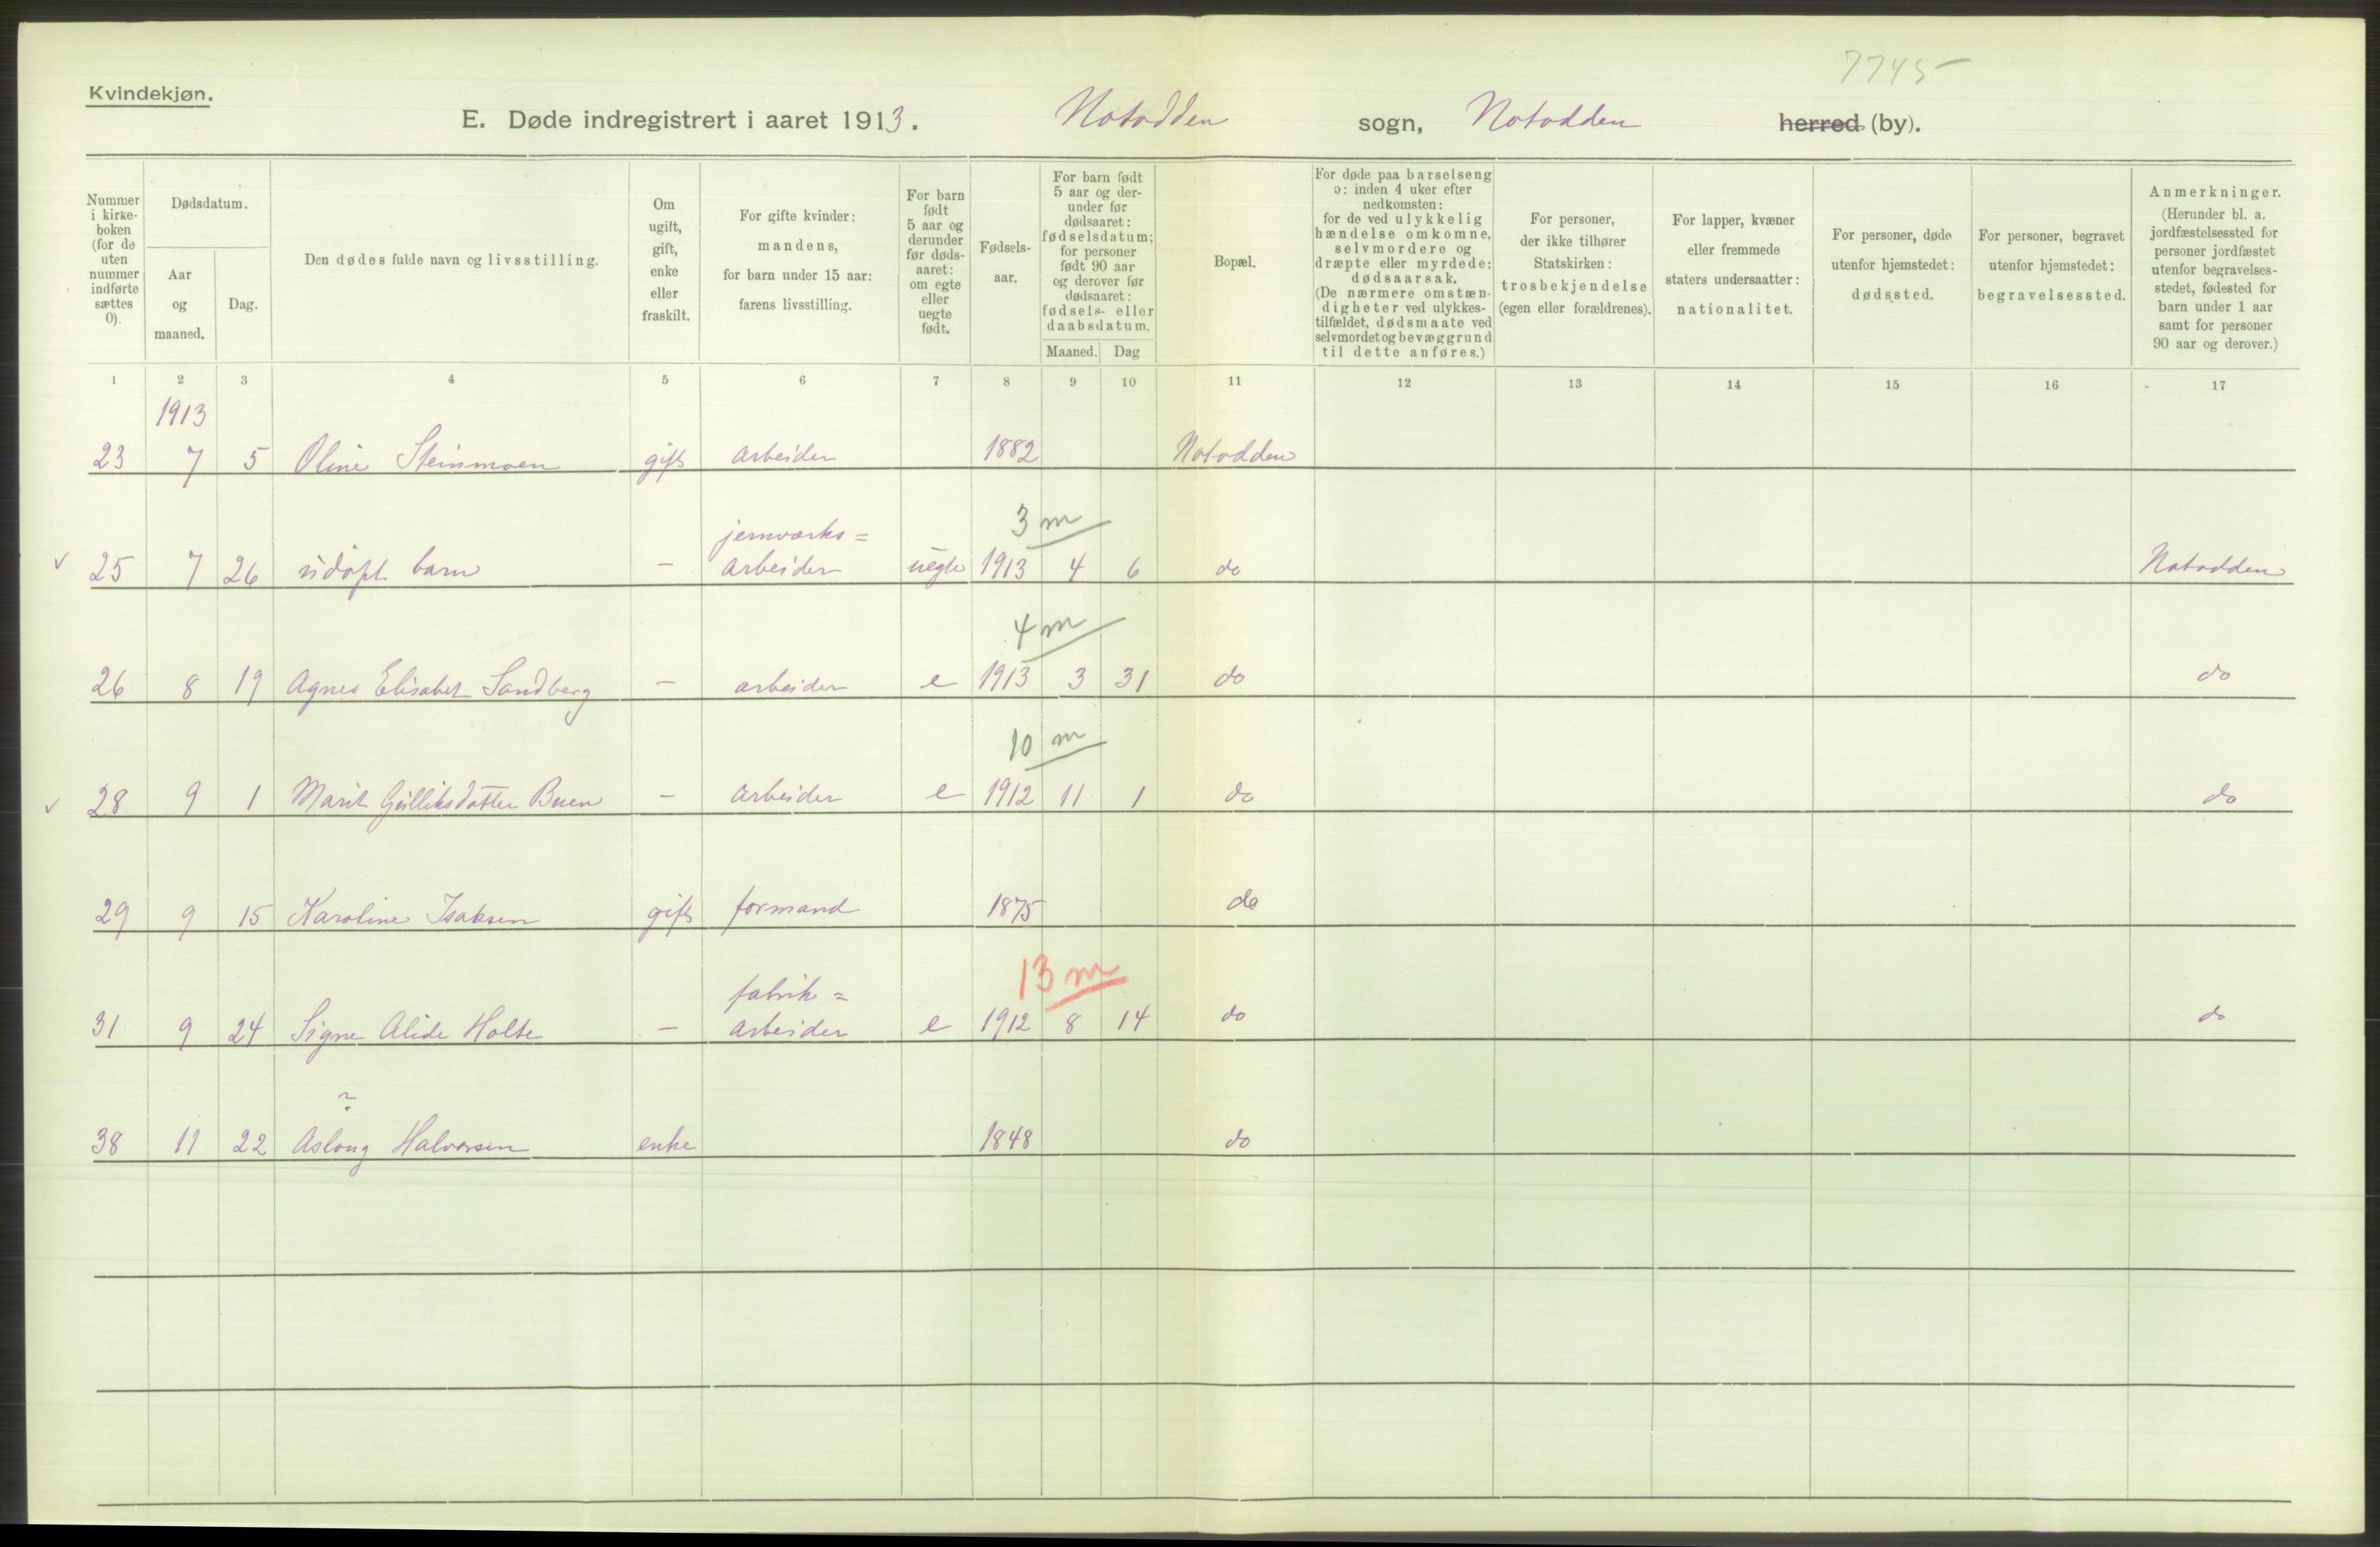 7745
Kvindekjøn.
E. Døde indregistrert i aaret 1913. Notodden sogn, Notodden herred (by).
Nummer i kirke- boken (for de uten nummer indførte sættes 0).
Dødsdatum.
Aar og maaned.
Dag.
Den dødes fulde navn og livsstilling.
Om ugift, gift, enke eller fraskilt.
For gifte kvinder: mandens, for barn under 15 aar: farens livsstilling.
For barn født 5 aar og derunder før døds- aaret: om egte eller uegte født.
Fødsels- aar.
For barn født 5 aar og der- under før dødsaaret: fødselsdatum; for personer født 90 aar og derover før dødsaaret: fødsels- eller daabsdatum.
Maaned. Dag
Bopæl.
For døde paa barselseng ɔ: inden 4 uker efter nedkomsten: for de ved ulykkelig hændelse omkomne, selvmordere og dræpte eller myrdede: dødsaarsak. (De nærmere omstæn- digheter ved ulykkes- tilfældet, dødsmaate ved selvmordet og bevæggrund til dette anføres.)
For personer, der ikke tilhører Statskirken: trosbekjendelse (egen eller forældrenes).
For lapper, kvæner eller fremmede staters undersaatter: nationalitet.
For personer, døde utenfor hjemstedet: dødssted.
For personer, begravet utenfor hjemstedet: begravelsessted.
Anmerkninger. (Herunder bl. a. jordfæstelsessted for personer jordfæstet utenfor begravelses- stedet, fødested for barn under 1 aar samt for personer 90 aar og derover.)
1 2 3 4 5 6 7 8 9 10 11 12 13 14 15 16 17
1913
23 7 5 Oline Steinmoen gift arbeider 1882 Notodden
3 m
jernværks=
v 25 7 26 udøpt barn - arbeider uegte 1913 4 6 do Notodden
4 m
26 8 19 Agnes Elisabet Sandberg - arbeider e 1913 3 31 do do
10 m
v 28 9 1 Marit Gulliksdatter Buen - arbeider e 1912 11 1 do do
29 9 15 Karoline Isaksen gift formand 1875 do
13 m
fabrik=
31 9 24 Signe Alide Holte - arbeider e 1912 8 14 do do
38 11 22 Aslaug Halvorsen enke 1848 do